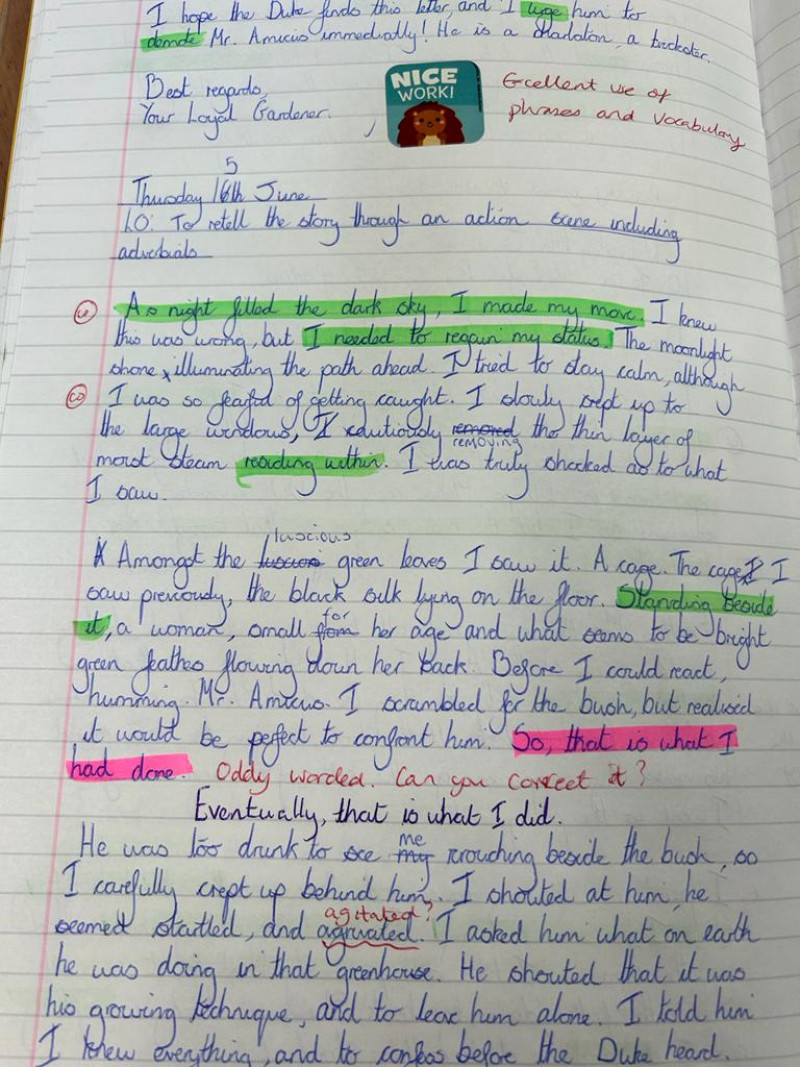 I hope the Duke finds this letter, and I urge him to
demote Mr. Amicus immediatly! He is a
Best regards,
Your Loyal Gardener.
NICE
WORK!
Excellent use of
phrases and vocabulary
5
Thursday 16th June
L.O: To retell the story through an action scene including
adverbials
As night filled the dark sky, I made my move. I knew
this was wrong, but I needed to regain my status. The moonlight
shone, illuminating the path ahead. I tried to stay calm, although
I was so fearful of getting caught. I slowly crept up to
the large windows, I cautiously removed the thin layer of
removing
moist steam residing within. I was truly shocked as to what
I saw.
luscious
Amongst the green leaves I saw it. A cage. The cage I
saw previously, the black silk lying on the floor. Standing beside
for
it, a woman, small from her age and what seems to be bright
green feathes flowing down her back. Before I could react,
humming. Mr. Amicus. I scrambled for the bush, but realised
it would be perfect to confront him. So, that is what I
had done. Oddly worded. Can you correct it?
Eventually, that is what I did.
me
He was too drunk to see my crouching beside the bush, so
I carefully crept up behind him,. I shouted at him, he
agitated?
seemed startled, and agrivated. I asked him what on earth
he was doing in that greenhouse. He shouted that it was
his growing technique, and to leave him alone. I told him
I knew everything, and to confess before the Duke heard.